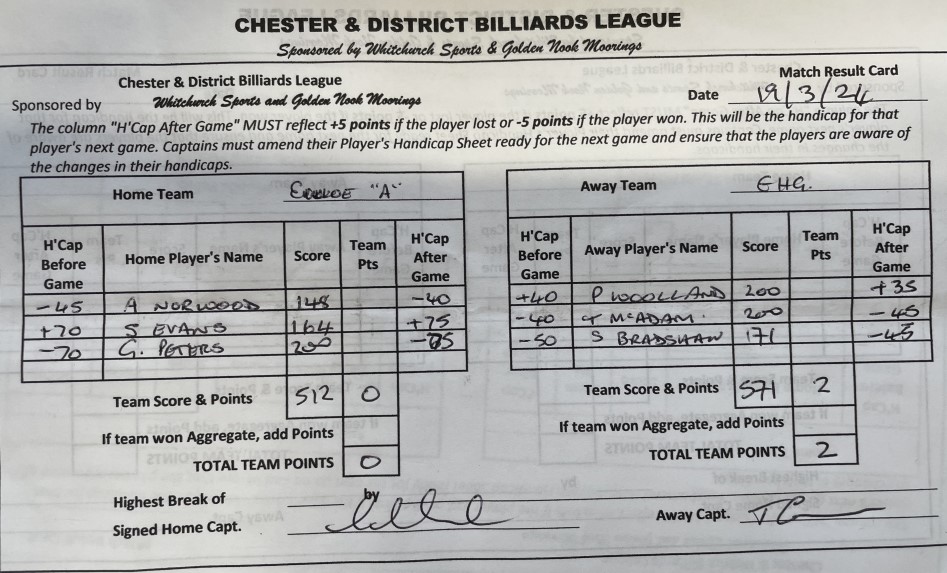 CHESTER & DISTRICT BILLIARDS LEAGUE
Sponsored by Whitchurch Sports & Golden Nook Moorings
Chester & District Billiards League
Match Result Card
Sponsored by Whitchurch Sports and Golden Nook Moorings
Date 19/3/24
The column "H'Cap After Game" MUST reflect +5 points if the player lost or -5 points if the player won. This will be the handicap for that
player's next game. Captains must amend their Player's Handicap Sheet ready for the next game and ensure that the players are aware of
the changes in their handicaps.
Home Team "A"
H'Cap Before Game Home Player's Name Score Team Pts H'Cap After Game
-45 A NORWOOD 148 -40
+70 S EVANS 164 +75
-70 G. PETERS 200
Team Score & Points 512 0
If team won Aggregate, add Points
TOTAL TEAM POINTS 0
Away Team EHG.
H'Cap Before Game Away Player's Name Score Team Pts H'Cap After Game
+40 P WOOLLAND 200 +35
-40 T McADAM. 200 -45
-50 S BRADSHAW 171 -45
Team Score & Points 571 2
If team won Aggregate, add Points
TOTAL TEAM POINTS 2
Highest Break of by
Signed Home Capt.
Away Capt.